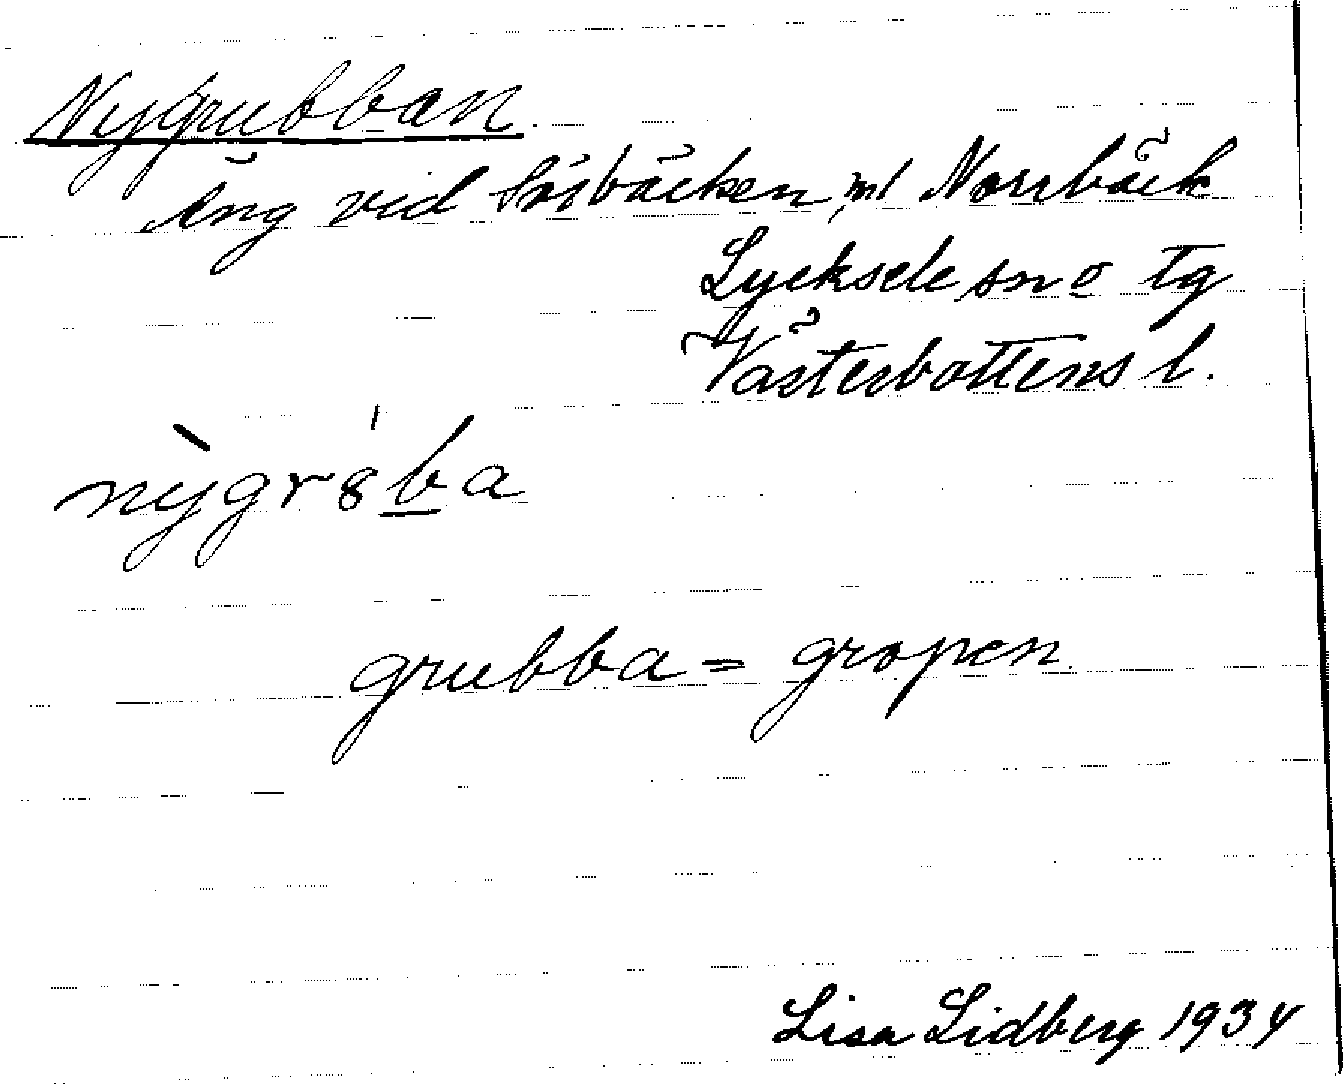 Nygrubban
äng vid Sörbäcken, ml Norrbäck
Lycksele sn o tg
Västerbottens l.
nỳgr8b̲a
grubba = gropen
Lisa Lidberg 1934